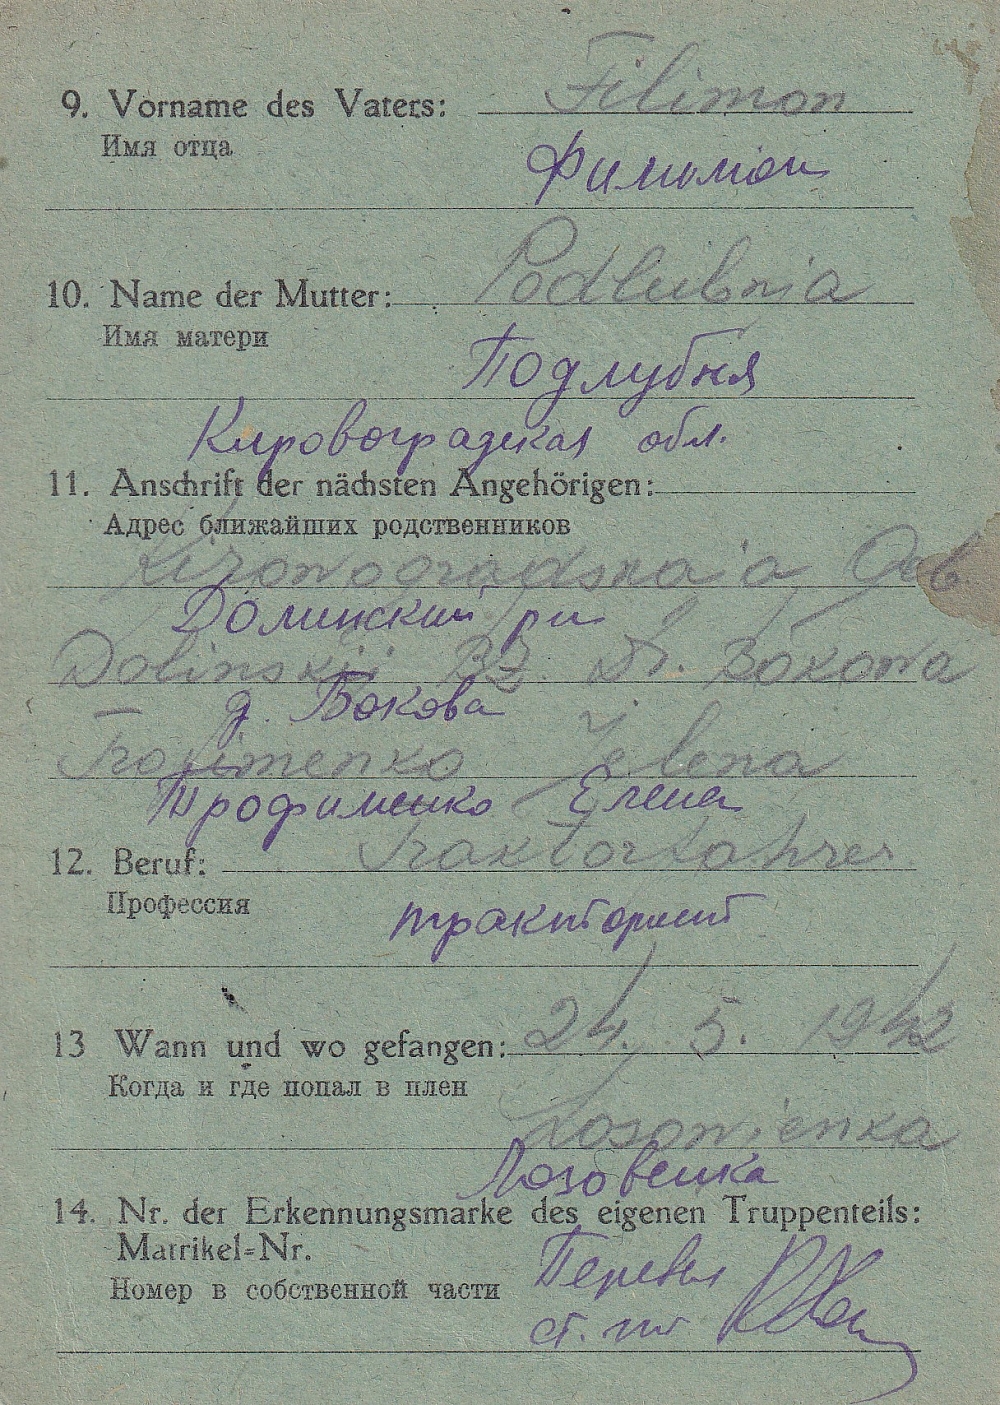 9. Vorname des Vaters: Filimon
Имя отца
Филимон
10. Name der Mutter: Podlubnia
Имя матери
Подлубня
Кировоградская обл.
11. Anschrift der nächsten Angehörigen:
Адрес ближайших родственников
Kirowogradskaja
Долинский
Dolinskij Bokowa
д. Бокова
Trofimenko Jelena
Трофименко Елена
12. Beruf: Traktorfahrer
Профессия
тракторист
13 Wann und wo gefangen: 24. 5. 1942
Когда и где попал в плен
Losowienka
Лозовенка
14. Nr. der Erkennungsmarke des eigenen Truppenteils:
Matrikel-Nr.
Номер в собственной части
Перевел
ст.